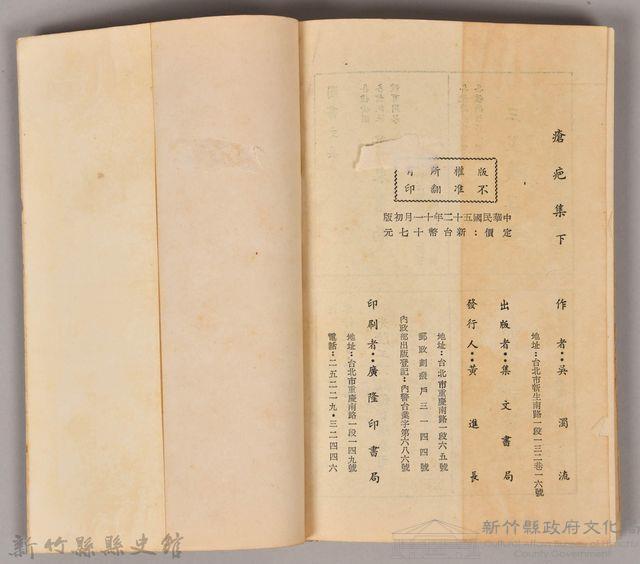 瘡疤集下
版權所有
不准翻印
中華民國五十二年十一月初版
定價：新台幣十七元
作者：吳濁流
地址：台北市新生南路一段一三二巷一六號
出版者：集文書局
發行人：黃進長
地址：台北市重慶南路一段六五號
郵政劃撥戶三一四四號
內政部出版登記：內警台業字第六八六號
印刷者：廣隆印書局
地址：台北市重慶南路一段一四九號
電話：二五二二九・三二四四六
新竹縣縣史館
新竹縣政府文化局
Cultural Affairs Bureau of Hsinchu
County Government